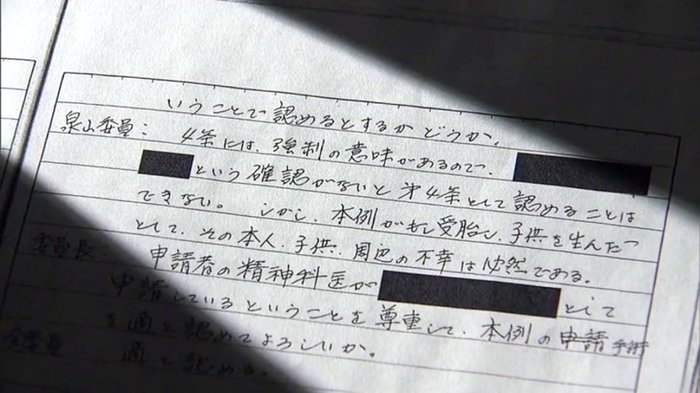 いうことで認めるとするかどうか。
泉山委員： 4条には、強制の意味があるので、
という確認がないと第4条として認めることは
できない。しかし、本例がもし受胎し、子供を生んだ
として、その本人、子供、周辺の不幸は必然である。
委員長： 申請者の精神科医が として
申請しているということを尊重して、本例の申請手術
を適と認めてよろしいか。
全委員 適と認める。